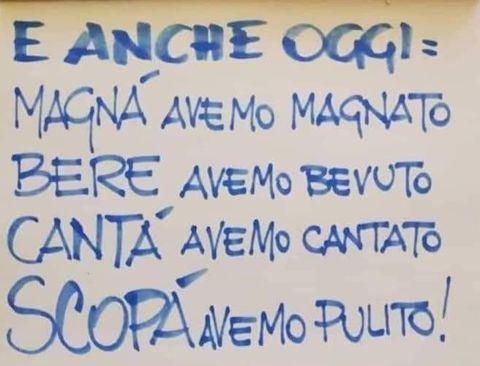 E ANCHE OGGI:
MAGNÁ AVEMO MAGNATO
BERE AVEMO BEVUTO
CANTÁ AVEMO CANTATO
SCOPÁ AVEMO PULITO!